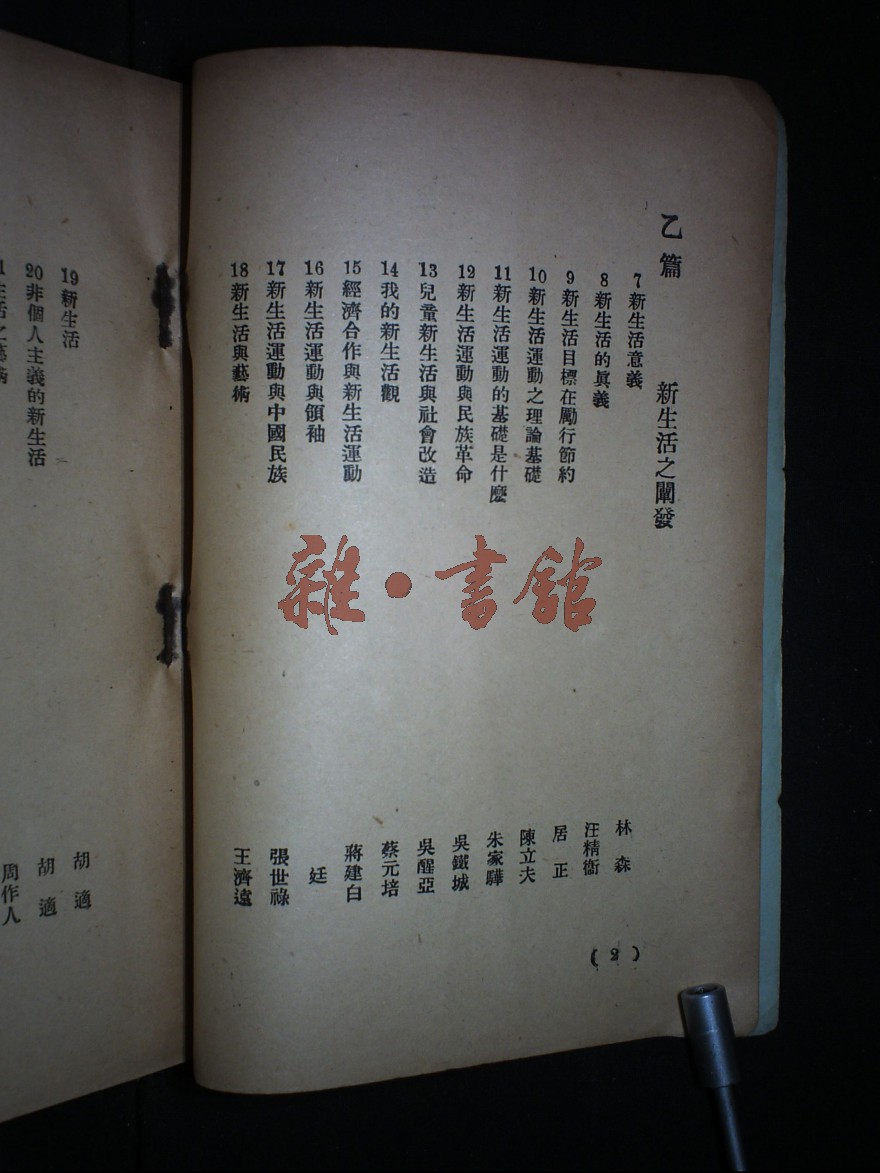 乙篇 新生活之闡發
7 新生活意義 林森
8 新生活的眞義 汪精衞
9 新生活目標在勵行節約 居正
10 新生活運動之理論基礎 陳立夫
11 新生活運動的基礎是什麽 朱家驊
12 新生活運動與民族革命 吳鐵城
13 兒童新生活與社會改造 吳醒亞
14 我的新生活觀 蔡元培
15 經濟合作與新生活運動 蔣建白
16 新生活運動與領袖 廷
17 新生活運動與中國民族 張世祿
18 新生活與藝術 王濟遠
(2)
雜·書館
19 新生活 胡適
20 非個人主義的新生活 胡適
生活之藝術 周作人